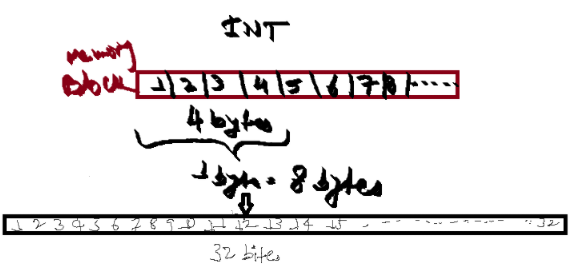 INT
memory
Block 1 2 3 4 5 6 7 8 ......
4 bytes
1 byte = 8 bytes
1 2 3 4 5 6 7 8 9 10 11 12 13 14 15 ---------- 32
32 bites